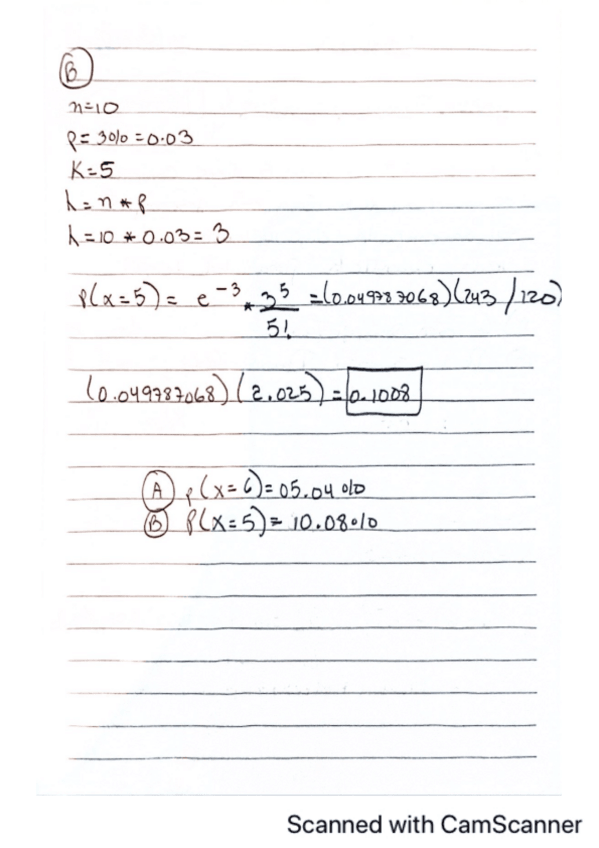 B
n=10
P= 3% = 0.03
K=5
λ = n * p
λ = 10 * 0.03 = 3
P(x=5) = e^-3 * 3^5 / 5! = (0.049787068)(243 / 120)
(0.049787068)(2.025) = 0.1008
A P(x=6) = 05.04 %
B P(x=5) = 10.08 %
Scanned with CamScanner